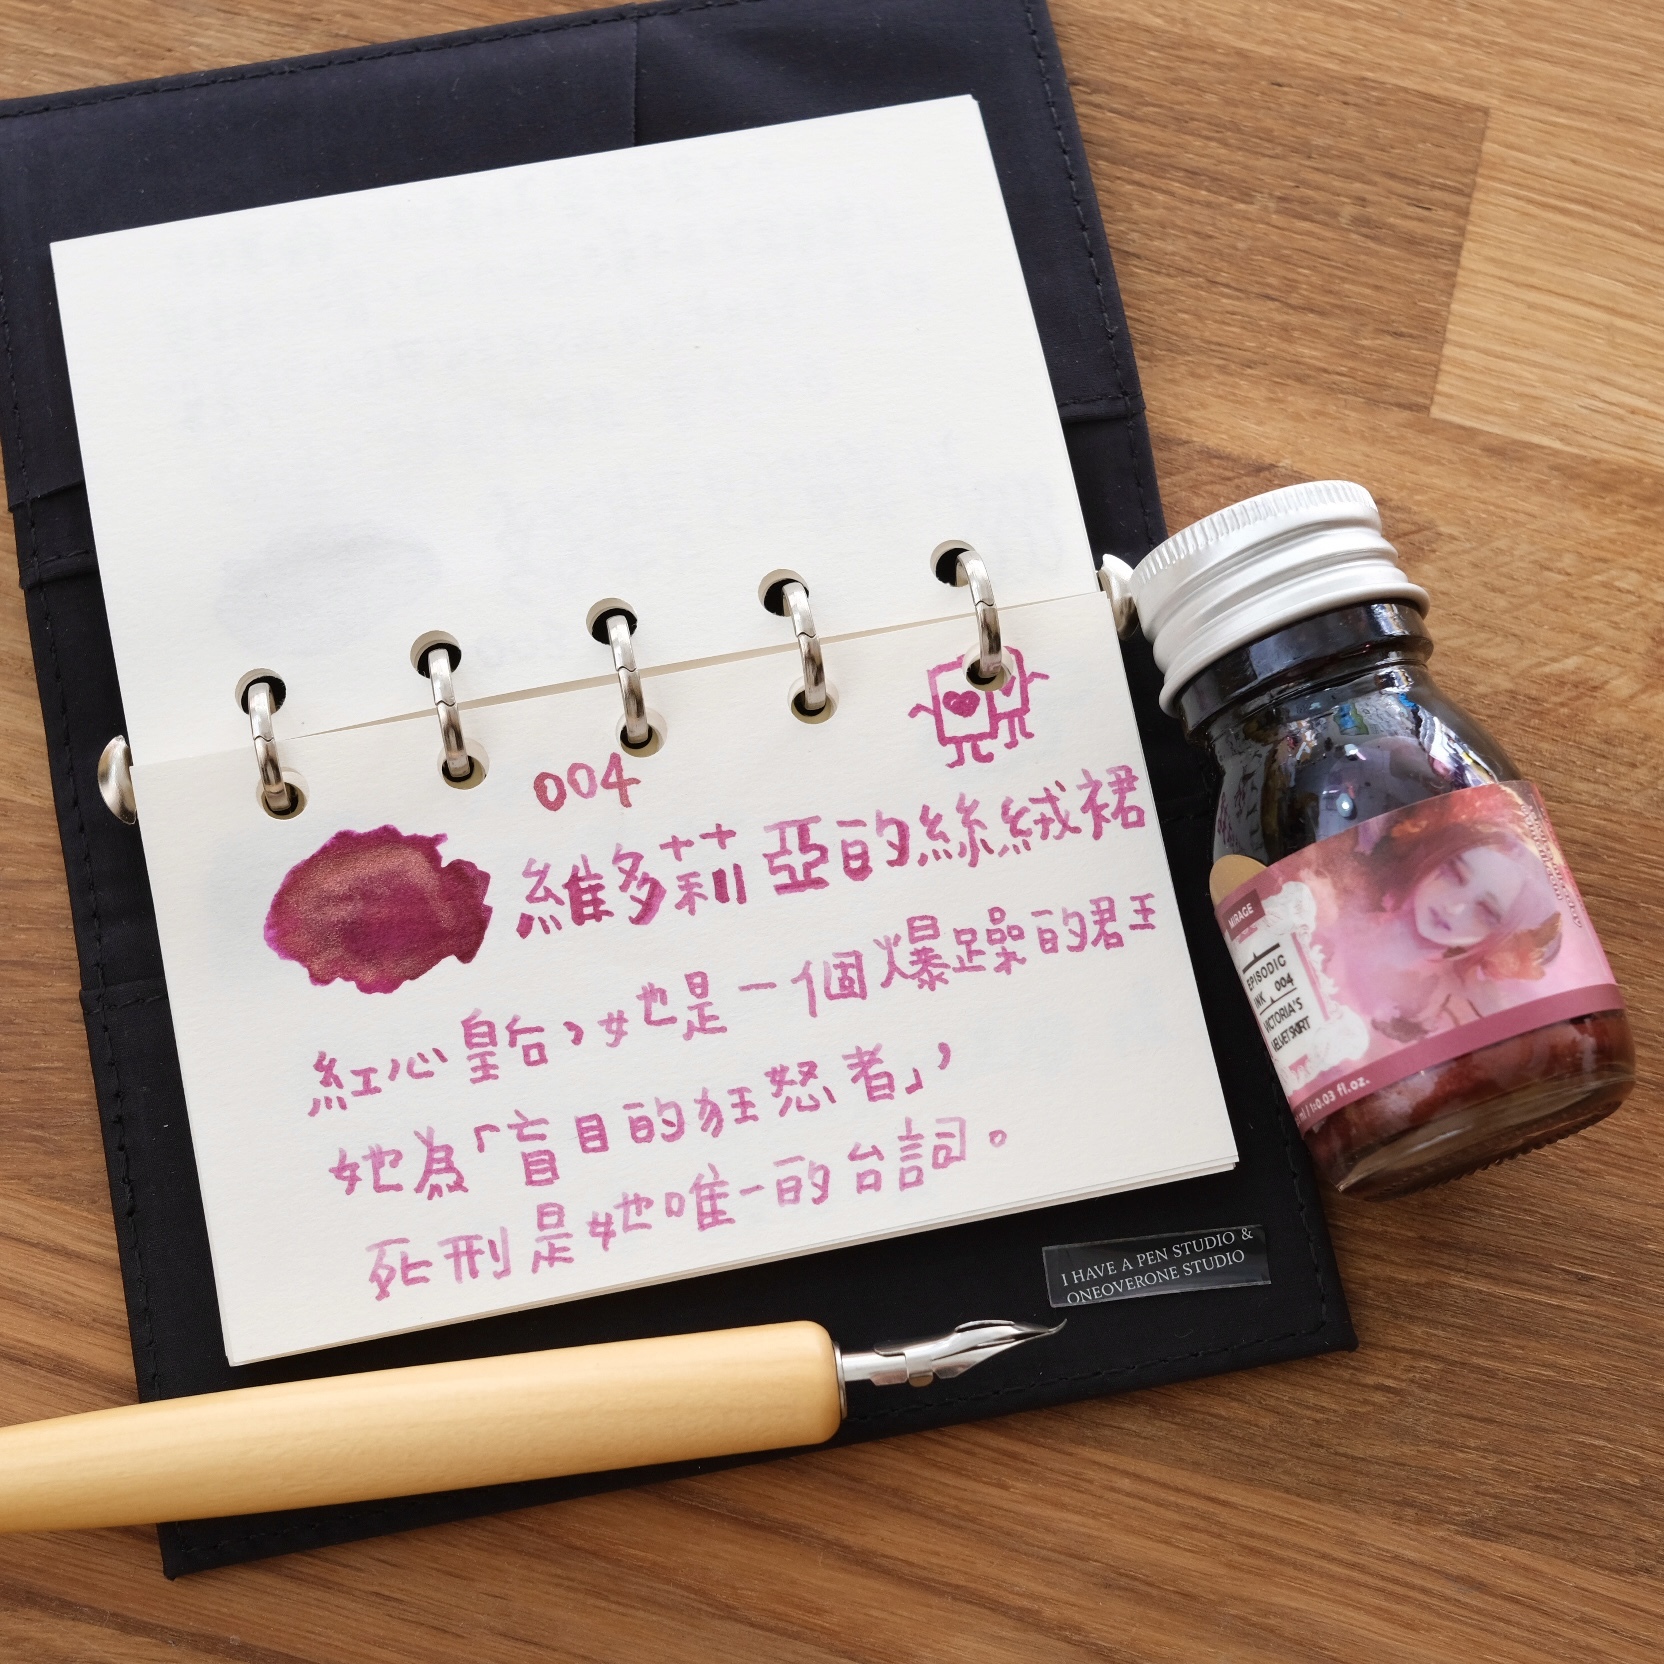 004
維多莉亞的絲絨裙
紅心皇后，她是一個爆躁的君王
她為「盲目的狂怒者」，
死刑是她唯一的台詞。
MIRAGE
EPISODIC
INK 004
VICTORIA'S
VELVET SKIRT
0.03 fl.oz.
I HAVE A PEN STUDIO &
ONEOVERONE STUDIO